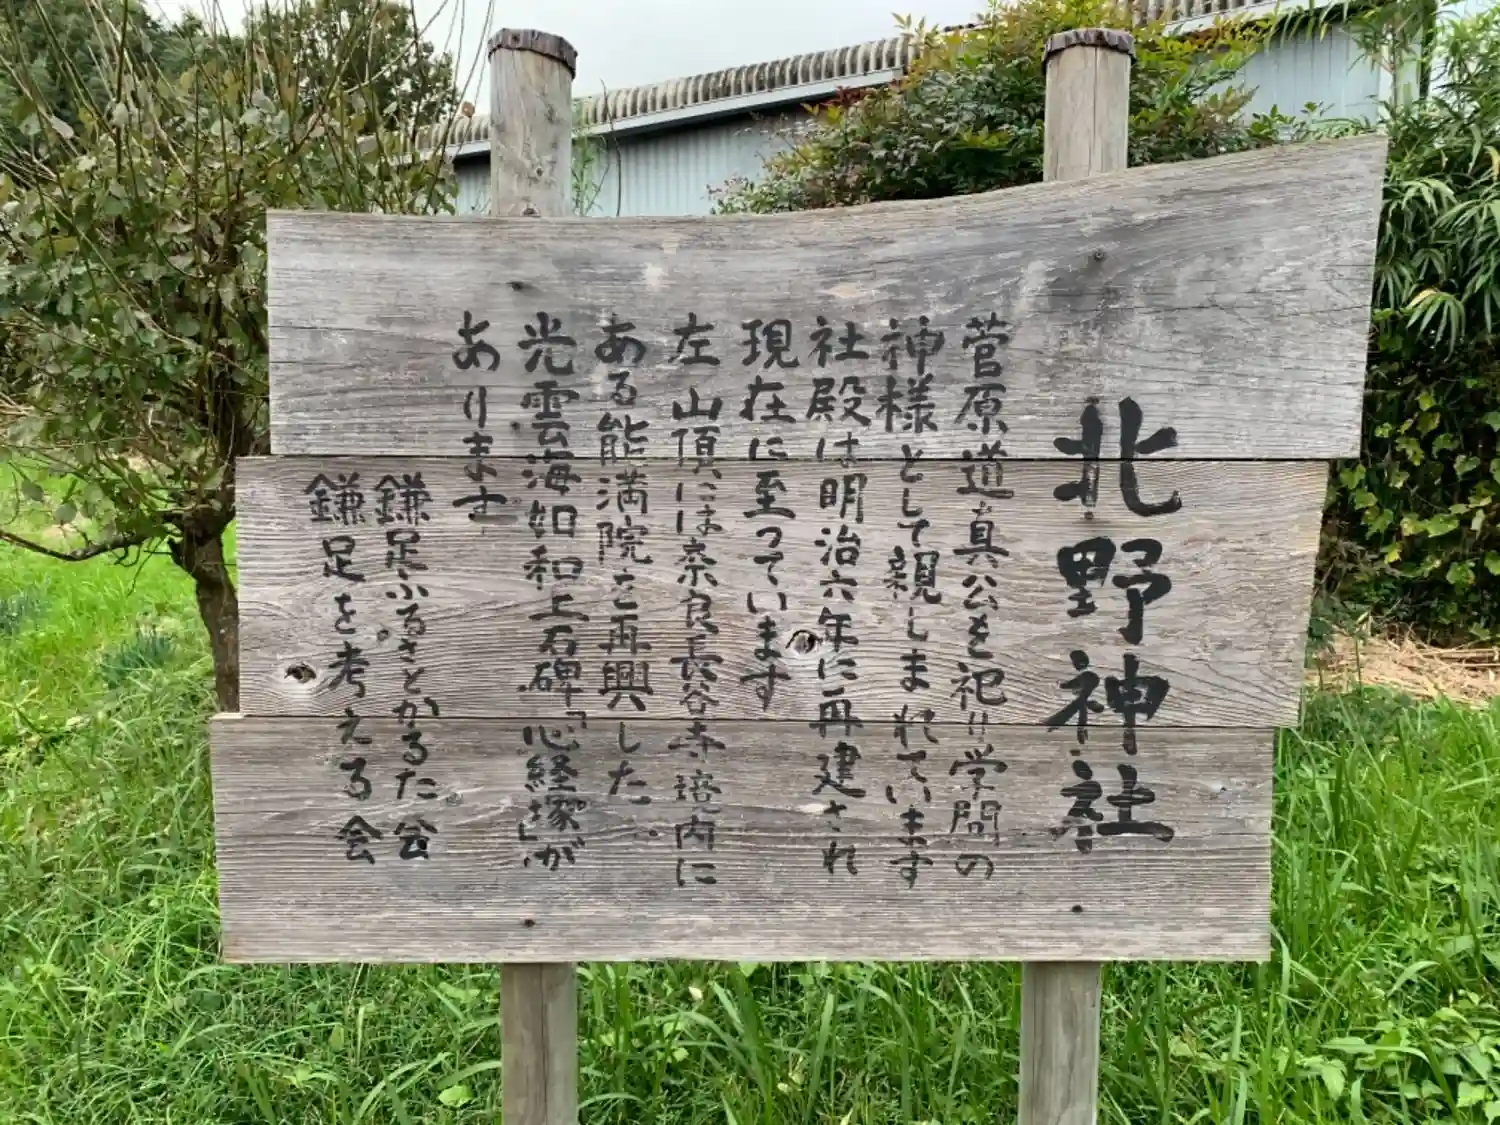 北野神社
菅原道真公を祀り学問の
神様として親しまれています
社殿は明治六年に再建され
現在に至っています
左 山頂には奈良長谷寺境内に
ある能満院を再興した、
光雲海如和上石碑「心経塚」が
あります
鎌足ふるさとかるた会
鎌足を考える会